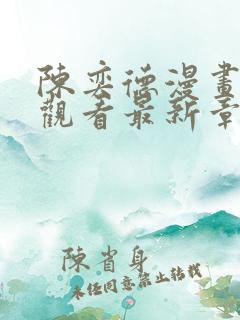 陳奕德漫畫
觀看最新章
陳省身
未经同意禁止转载